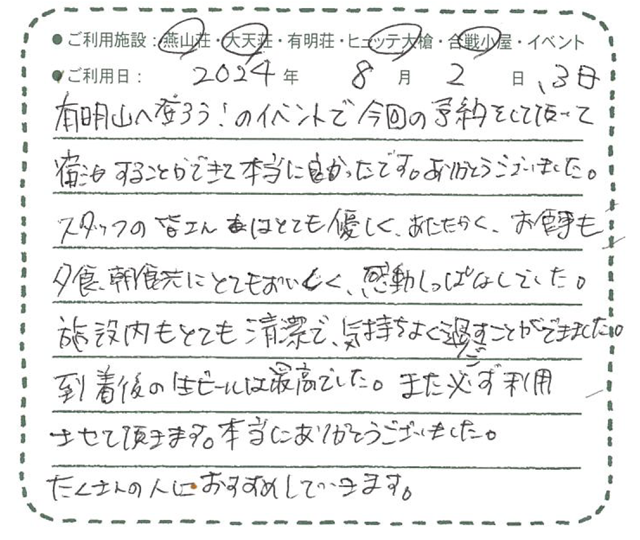 ●ご利用施設：燕山荘・大天荘・有明荘・ヒュッテ大槍・合戦小屋・イベント
●ご利用日：2024年 8月 2日、3日
有明山へ登ろう！のイベントで今回の予約をして頂いて
宿泊することができて本当に良かったです。ありがとうございました。
スタッフの皆さんはとても優しく、あたたかく、お食事も
夕食、朝食共にとてもおいしく、感動しっぱなしでした。
施設内もとても清潔で、気持ちよく過ごすことができました。
到着後の生ビールは最高でした。また必ず利用
させて頂きます。本当にありがとうございました。
たくさんの人におすすめしていきます。